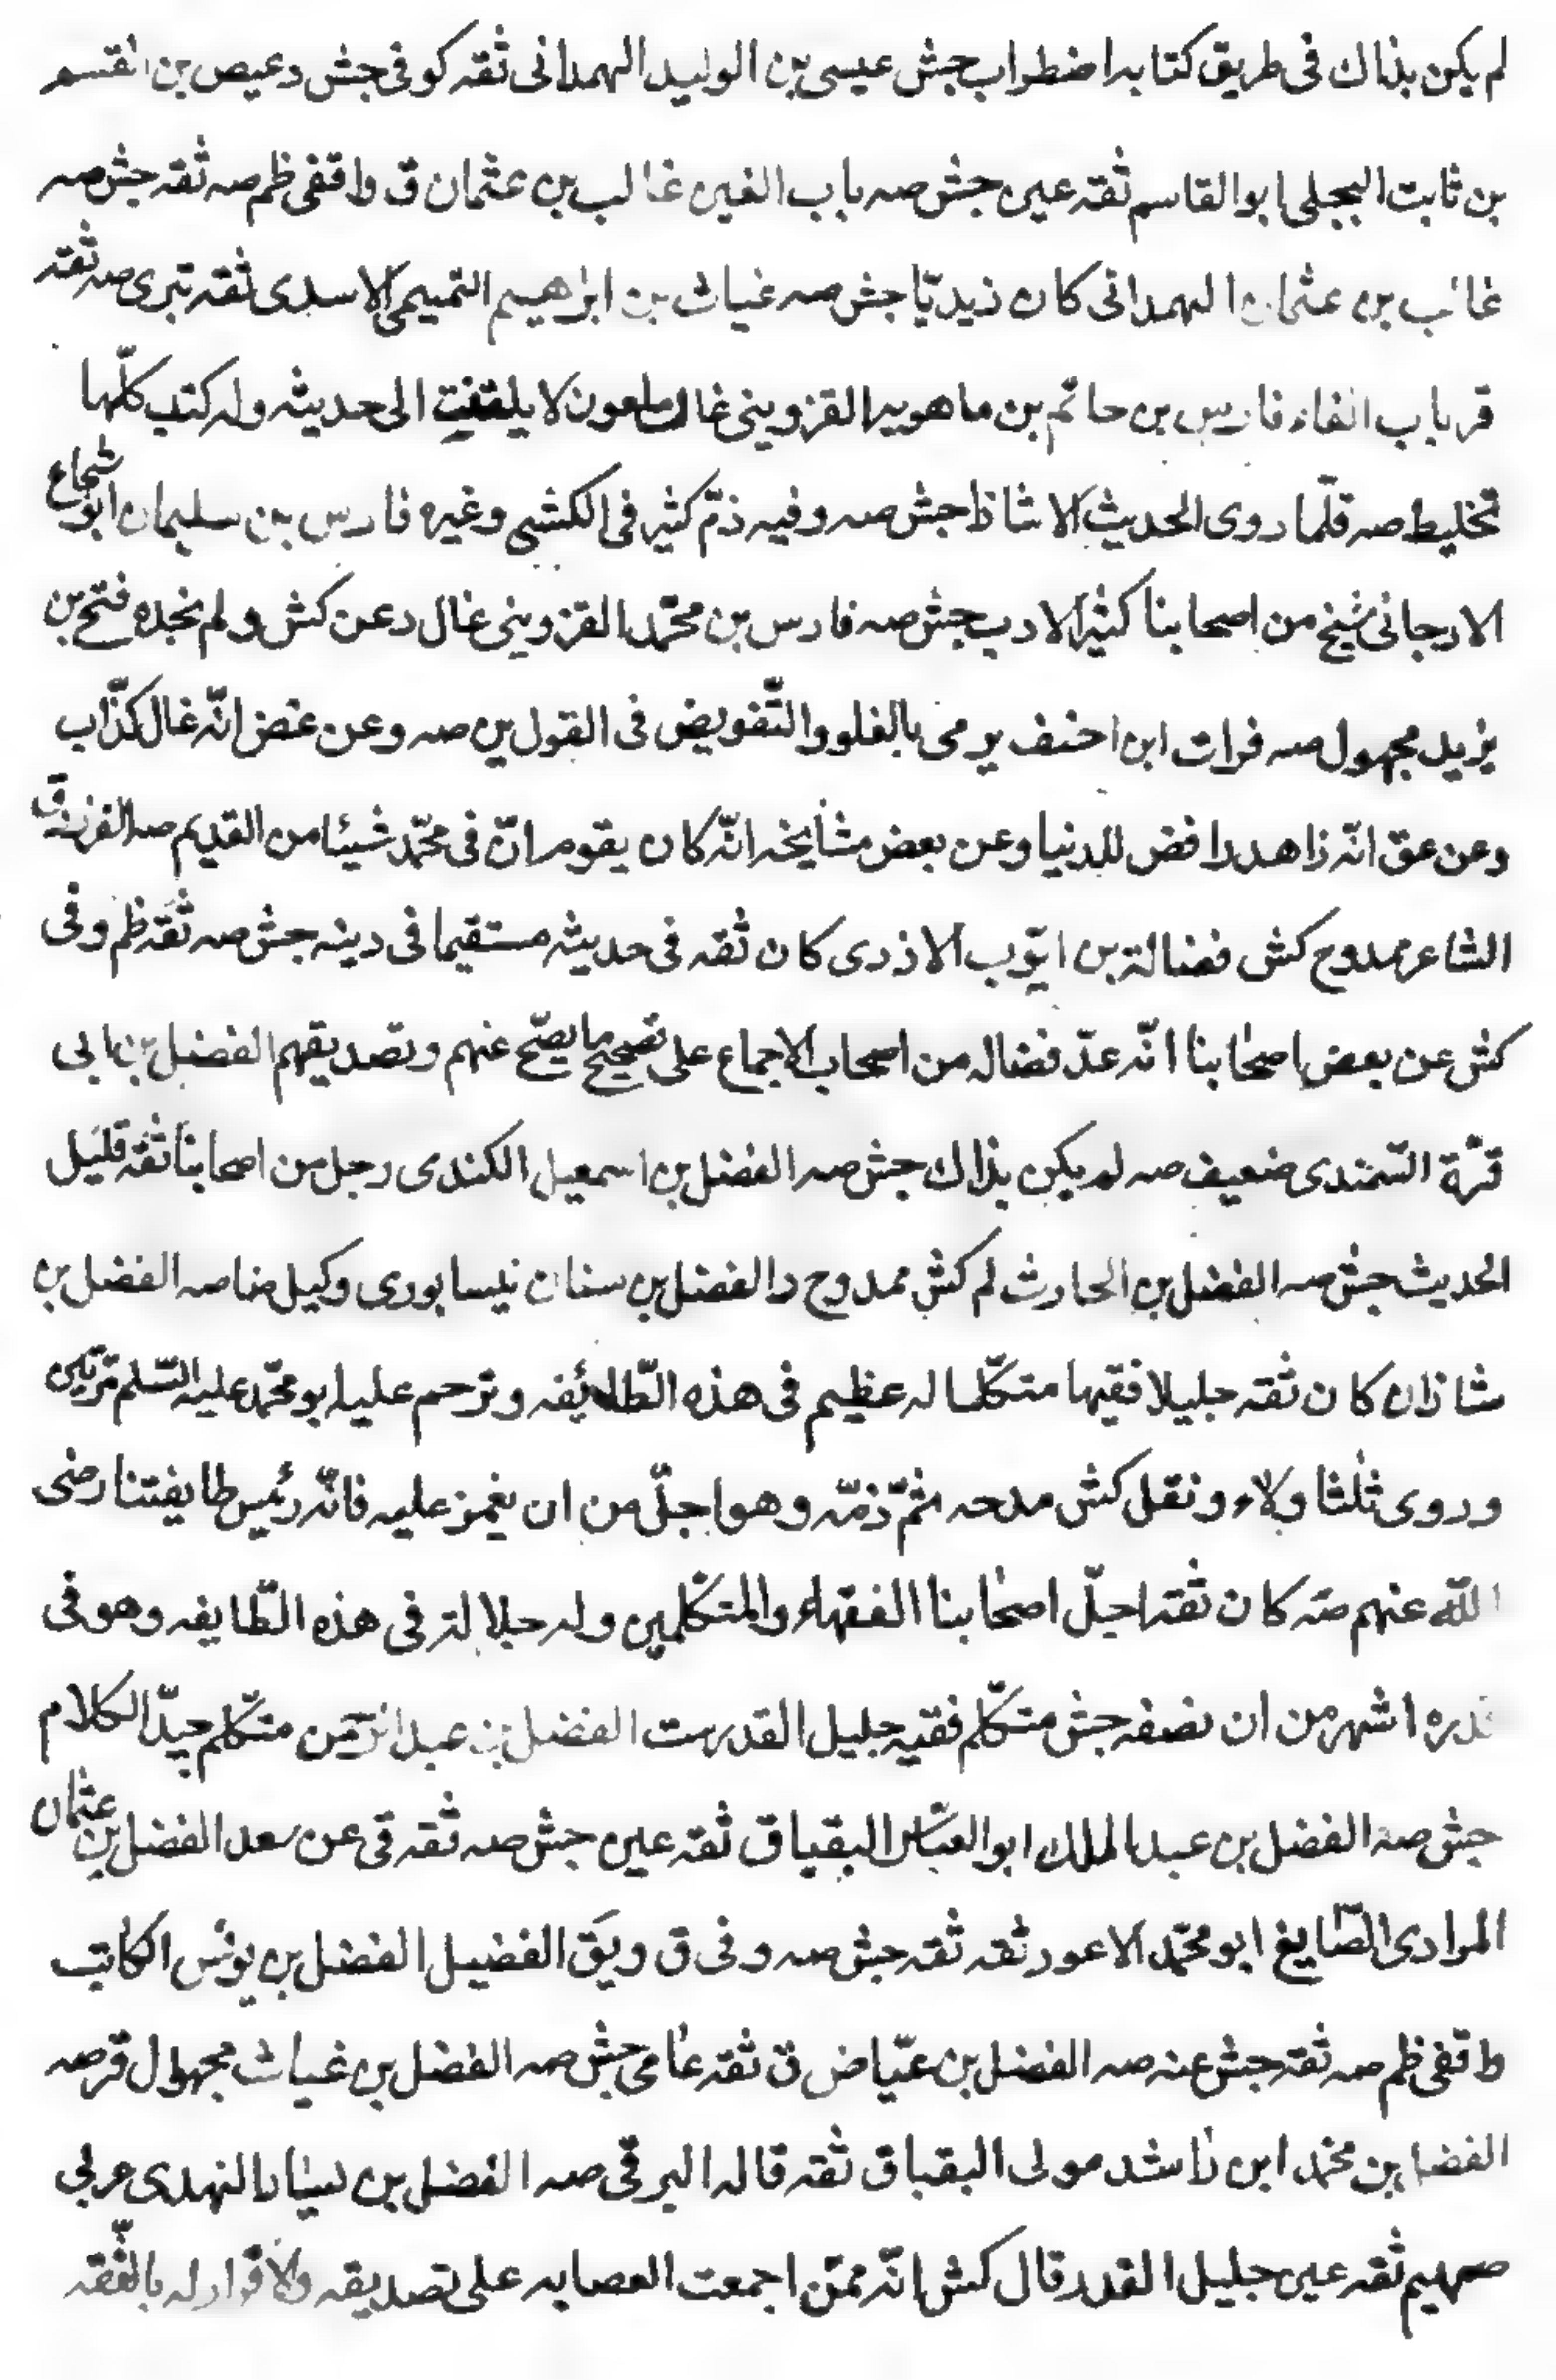 لم يكن بذاك فى طريق كتابه اضطراب جش عيسى بن الوليد الهمدانى ثقه كوفى جش د عيص بن القسم
بن ثابت البجلى ابو القاسم ثقه عين جش صه باب الغين غالب بن عثمان ق واقفى ظم صه ثقه جش صه
غالب بن عثمان الهمدانى كان زيديّا جش صه غياث بن ابرٰهيم التميمى الاسدى ثقه تبرى صه ثقه
قر باب الفاء فارس بن حاتم بن ماهويه القزوينى غال ملعون لا يلتفت الى حديثه وله كتب كلّها
تخليط صه قلّما روى الحديث الا شاذا جش صه وفيه ذمّ كثير فى الكشى وغيره فارس بن سليمان ابو شجاع
الارجانى شيخ من اصحابنا كثير الادب جش صه فارس بن محمّد القزوينى غال د عن كش ولم نجده فتح بن
يزيد مجهول صه فرات ابن احنف يرمى بالغلو والتّفويض فى القول ين صه وعن غض انّه غال كذّاب
وعن عق انّه زاهد رافض للدنيا وعن بعض مشايخه انّه كان يقوم انّ فى محمّد شيئا من القديم صه الفرزدق
الشاعر ممدوح كش فضالة بن ايّوب الازدى كان ثقه فى حديثه مستقيما فى دينه جش صه ثقه ظم وفى
كش عن بعض اصحٰابنا انّه عدّ فضاله من اصحاب الاجماع على تصحيح ما يصحّ عنهم وتصديقهم الفضل بن ابى
قرّة السّمندى ضعيف صه لم يكن بذاك جش صه الفضل بن اسمعيل الكندى رجل من اصحابنا ثقه قليل
الحديث جش صه الفضل بن الحارث لم كش ممدوح د الفضل بن سنان نيسابورى وكيل ضا صه الفضل بن
شاذان كان ثقه جليلا فقيها متكلّما له عظيم فى هذه الطّائفه وترحم عليه ابو محمّد عليه السّلم مرّتين
وروى ثلٰثا ولاء ونقل كش مدحه ثمّ ذمّه وهو اجلّ من ان يغمز عليه فانّه رئيس طايفتنا رضى
اللّه عنهم صه كان ثقه اجلّ اصحٰابنا الفقهاء والمتكلّمين وله جلالة فى هذه الطّايفه وهو فى
قدره اشهر من ان نصفه جش متكلّم فقيه جليل القدر ست الفضل بن عبد الرّحمن متكلّم جيّد الكلام
جش صه الفضل بن عبد الملك ابو العبّاس البقباق ثقه عين جش صه ثقه قى عن سعد الفضل بن عثمان
المرادى الصّايغ ابو محمّد الاعور ثقه ثقه جش صه وفى ق ويق الفضيل الفضل بن يونس الكاتب
واقفى ظم صه ثقه جش عنه صه الفضل بن عيّاض ق ثقه عامى جش صه الفضل بن غياث مجهول قر صه
الفضل بن محمّد ابن راشد مولى البقباق ثقه قاله البرقى صه الفضل بن يسٰار النهدى عربى
صميم ثقه عين جليل القدر قال كش انّه ممّن اجمعت العصابه على تصديقه والاقرار له بالفقه